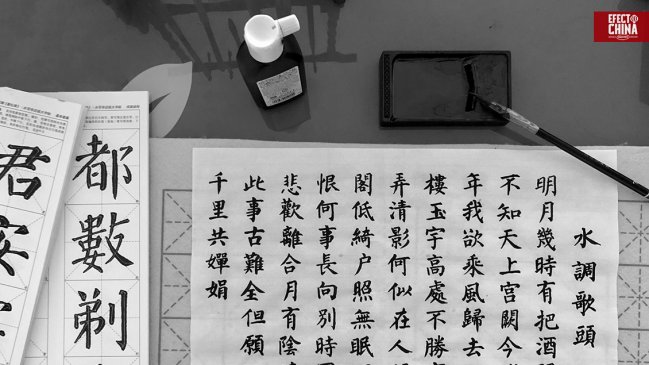 EFECTO
CHINA
水調歌頭
明月幾時有把酒
不知天上宮闕今
年我欲乘風歸去
樓玉宇高處不勝
弄清影何似在人
閣低綺户照無眠
恨何事長向別時
悲歡離合月有陰
此事古難全但願
千里共嬋娟
都數剃
君安